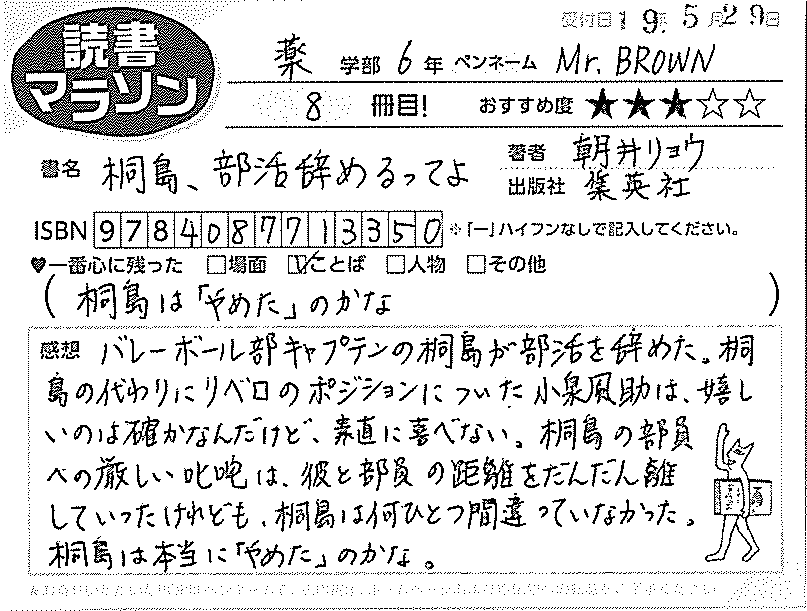 受付日19年5月29日
読書
マラソン
薬 学部 6 年 ペンネーム Mr. BROWN
8 冊目! おすすめ度 ★★★☆☆
書名 桐島、部活辞めるってよ
著者 朝井リョウ
出版社 集英社
ISBN 9784087713350 ※「ー」ハイフンなしで記入してください。
♥一番心に残った □場面 ☑ことば □人物 □その他
( 桐島は「やめた」のかな )
感想 バレーボール部キャプテンの桐島が部活を辞めた。桐
島の代わりにリベロのポジションについた小泉風助は、嬉し
いのは確かなんだけど、素直に喜べない。桐島の部員
への厳しい叱咤は、彼と部員の距離をだんだん離
していったけれども、桐島は何ひとつ間違っていなかった。
桐島は本当に「やめた」のかな。